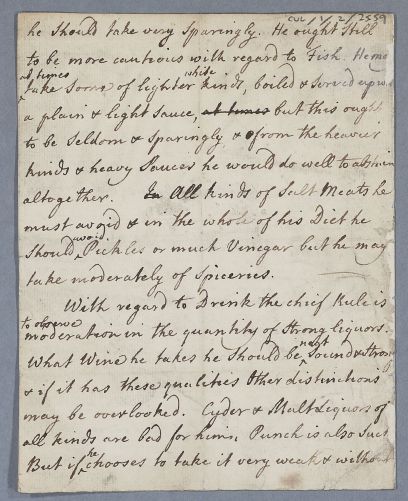 CUL/1/2/2559
he should take very Sparingly. He ought still
to be more cautious with regard to Fish. He may
at times white
take some of lighter kinds, boiled & served up with
a plain & light Sauce, at times but this ought
to be Seldom & Sparingly & from the heavier
kinds & heavy Sauces he would do well to abstain
altogether. In All kinds of Salt Meats he
must avoid & in the whole of his Diet he
avoid
Should Pickles or much Vinegar but he may
take moderately of Spiceries.
With regard to Drink the chief Rule is
to observe
moderation in the quantity of Strong liquors.
What Wine he takes he Should be Sound & Strong
& if it has these qualities Other distinctions
may be overlooked. Cyder & Malt Liquors of
all kinds are bad for him. Punch is also Such
he
But if chooses to take it very weak & without